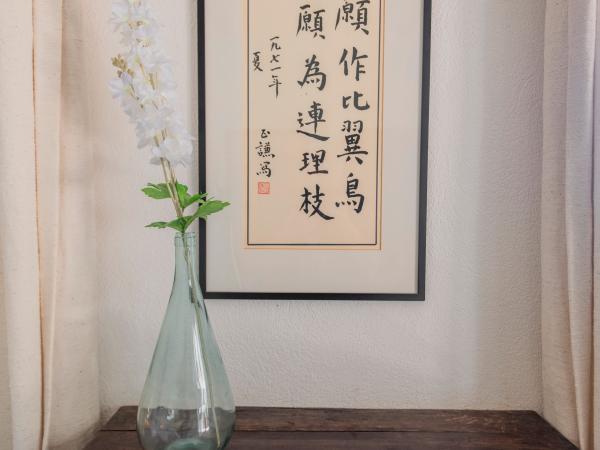 願作比翼鳥
願為連理枝
一九七一年
夏
正謙寫